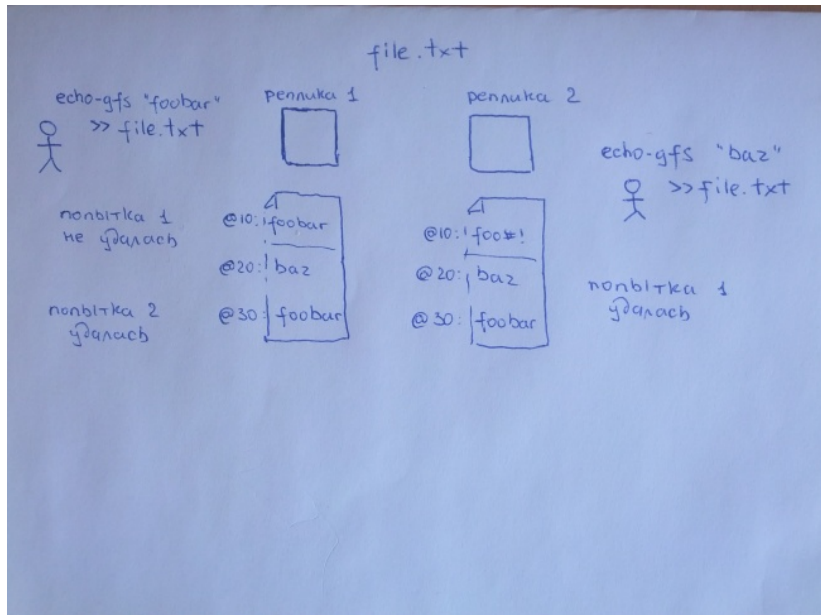 file.txt
echo-gfs "foobar"
>> file.txt
реплика 1
реплика 2
echo-gfs "baz"
>> file.txt
попытка 1
не удалась
@10: foobar
@20: baz
@30: foobar
попытка 2
удалась
@10: foo*!
@20: baz
@30: foobar
попытка 1
удалась